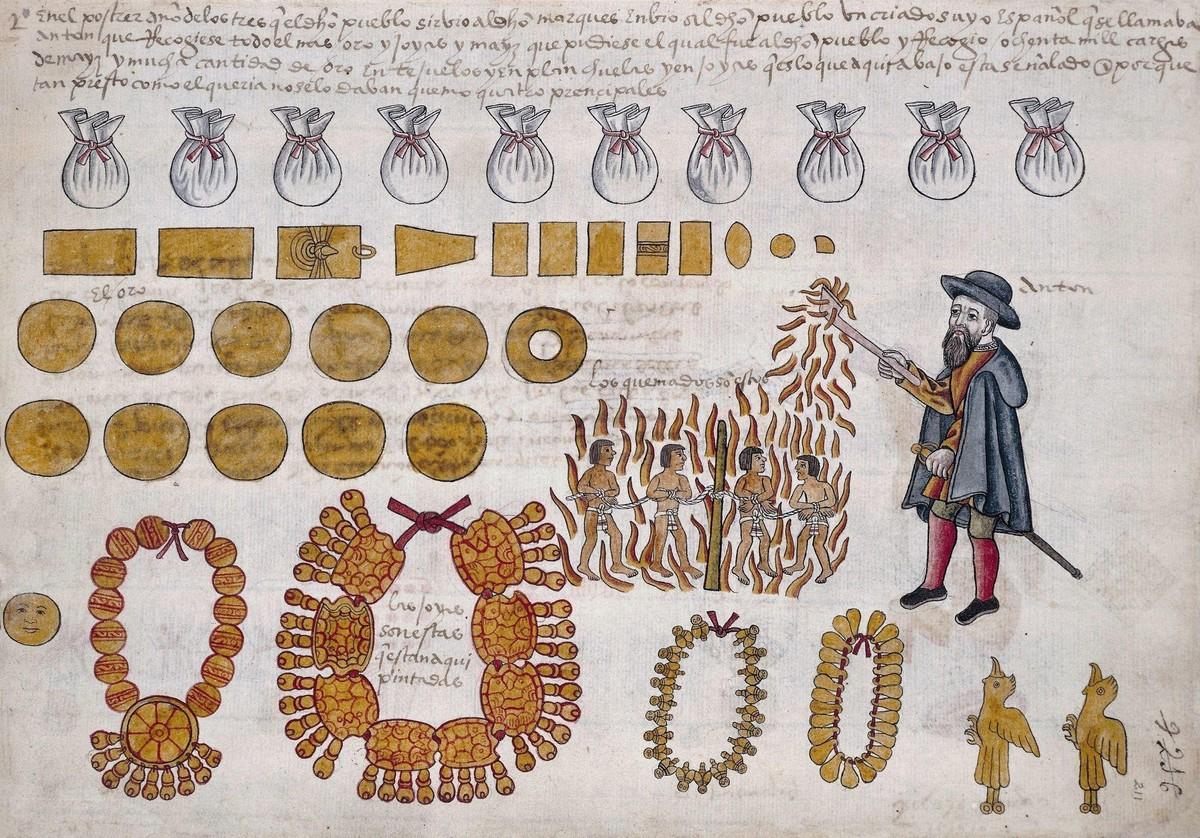 enel postrer año de los tres q̃ el dho pueblo sirbio al dho marques enbio al dho pueblo un criado suyo español q̃ se llamaba
anton que Recogiese todo el mas oro y joyas y mayz que pudiese el qual fue al dho pueblo y Recogio ochenta mill cargas
de mayz y mucha cantidad de oro en tejuelos y en planchuelas y en joyas q̃ es lo que aqui abajo esta señalado y porque
tan presto como el queria no selo daban quemo quatro prencipales
El oro
anton
los quemados so estos
las joyas
son estas
q̃ estan aqui
pintadas
211